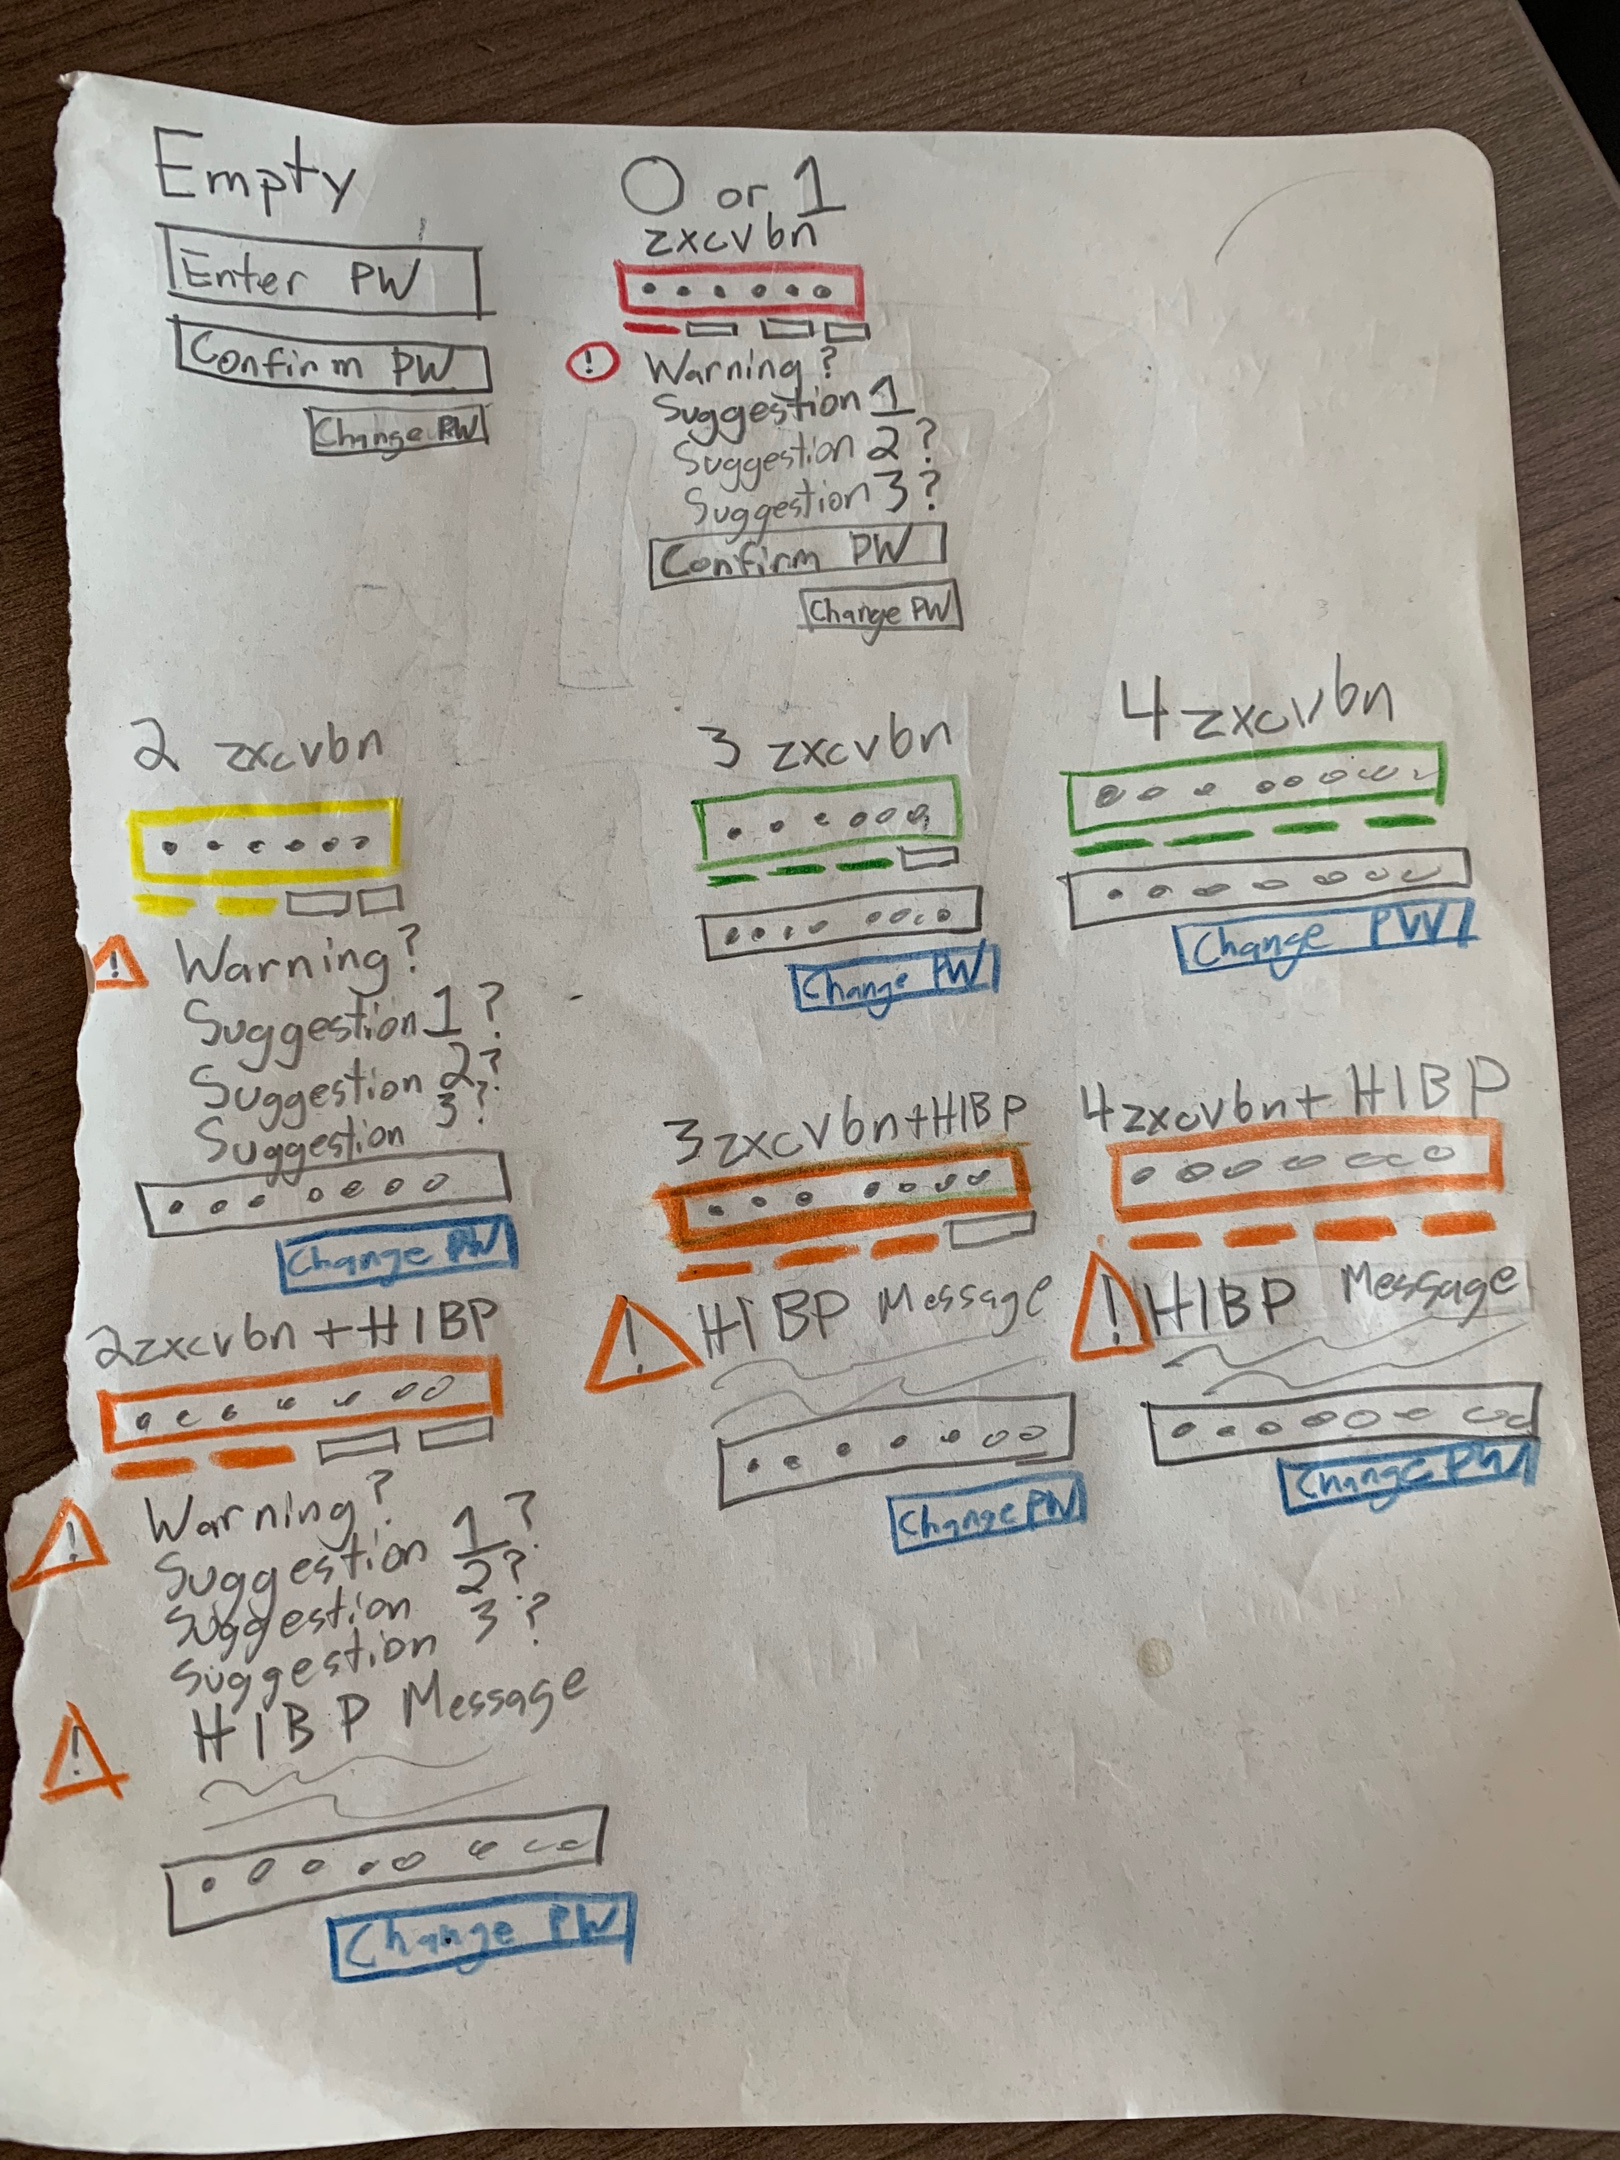 Empty
Enter PW
Confirm PW
Change PW
0 or 1
zxcvbn
! Warning?
Suggestion 1
Suggestion 2?
Suggestion 3?
Confirm PW
Change PW
2 zxcvbn
! Warning?
Suggestion 1?
Suggestion 2?
Suggestion 3?
Change PW
3 zxcvbn
Change PW
4 zxcvbn
Change PW
2zxcvbn + HIBP
! Warning?
Suggestion 1?
Suggestion 2?
Suggestion 3?
! HIBP Message
Change PW
3 zxcvbn+HIBP
! HIBP Message
Change PW
4zxcvbn+ HIBP
! HIBP Message
Change PW